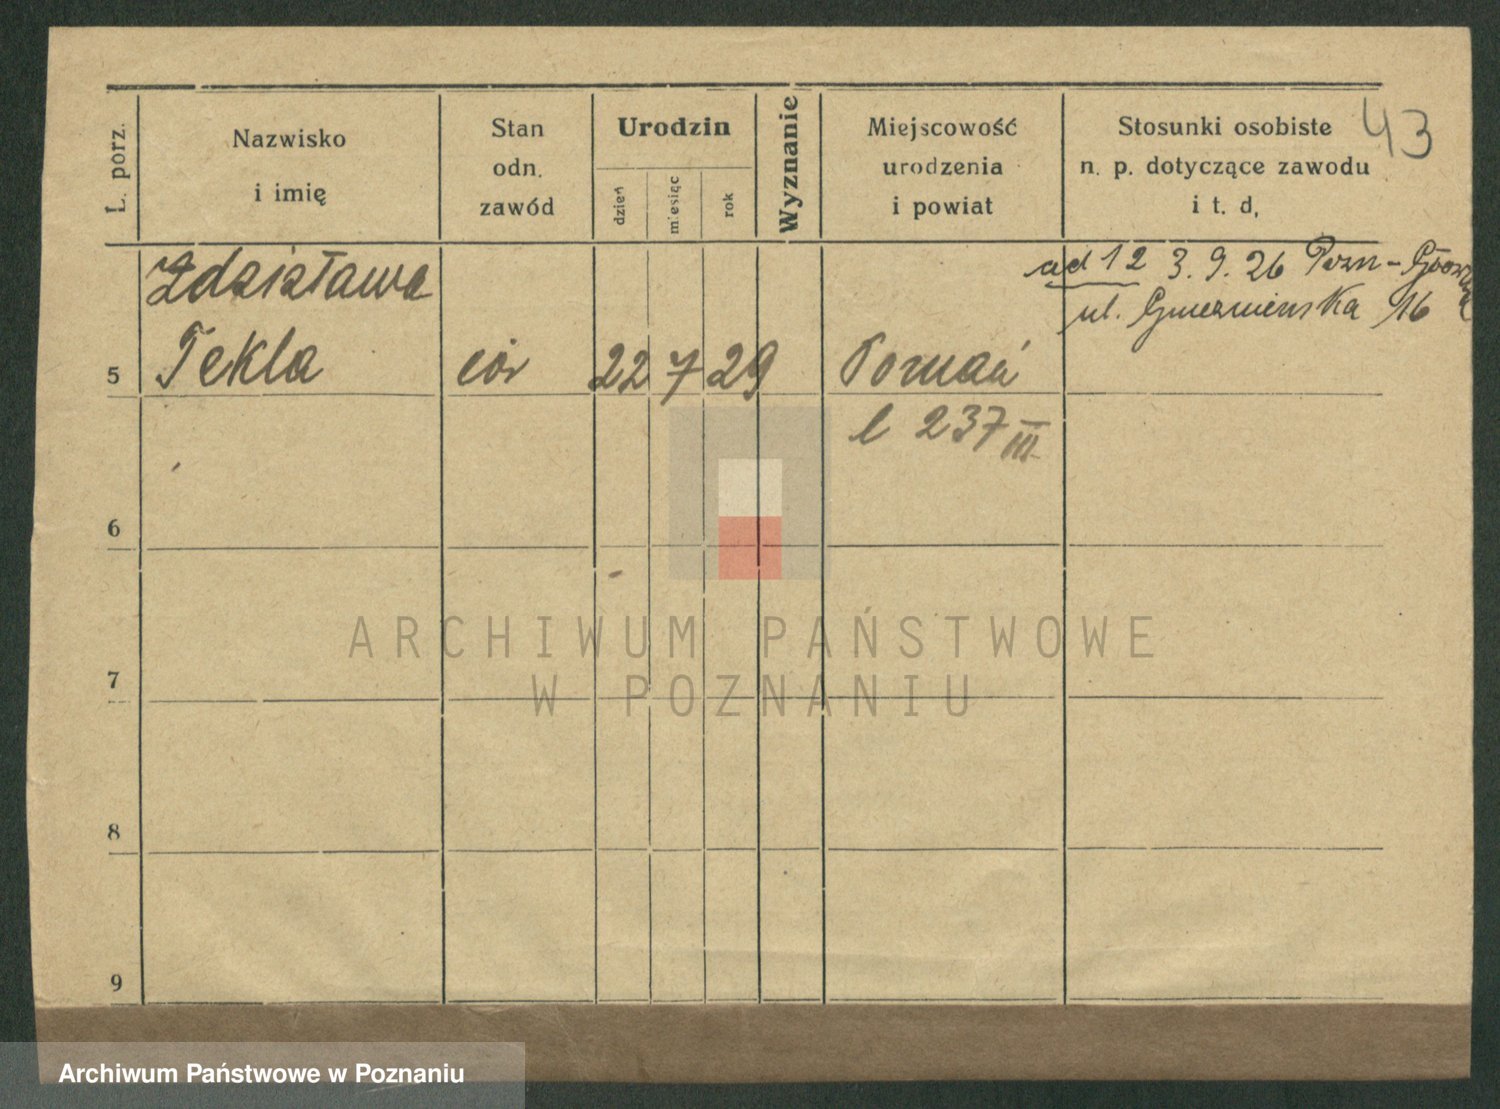 L. porz.
Nazwisko
i imię
Stan
odn.
zawód
Urodzin
dzień
miesiąc
rok
Wyznanie
Miejscowość
urodzenia
i powiat
Stosunki osobiste
n. p. dotyczące zawodu
i t. d,
43
Zdzisława
ad 12 3.9.26 Pozn -
ul. Gnieznienska 16
5 Tekla cór 22 7 29 Poznań
l 237 III
6
ARCHIWUM PAŃSTWOWE
W POZNANIU
7
8
9
Archiwum Państwowe w Poznaniu